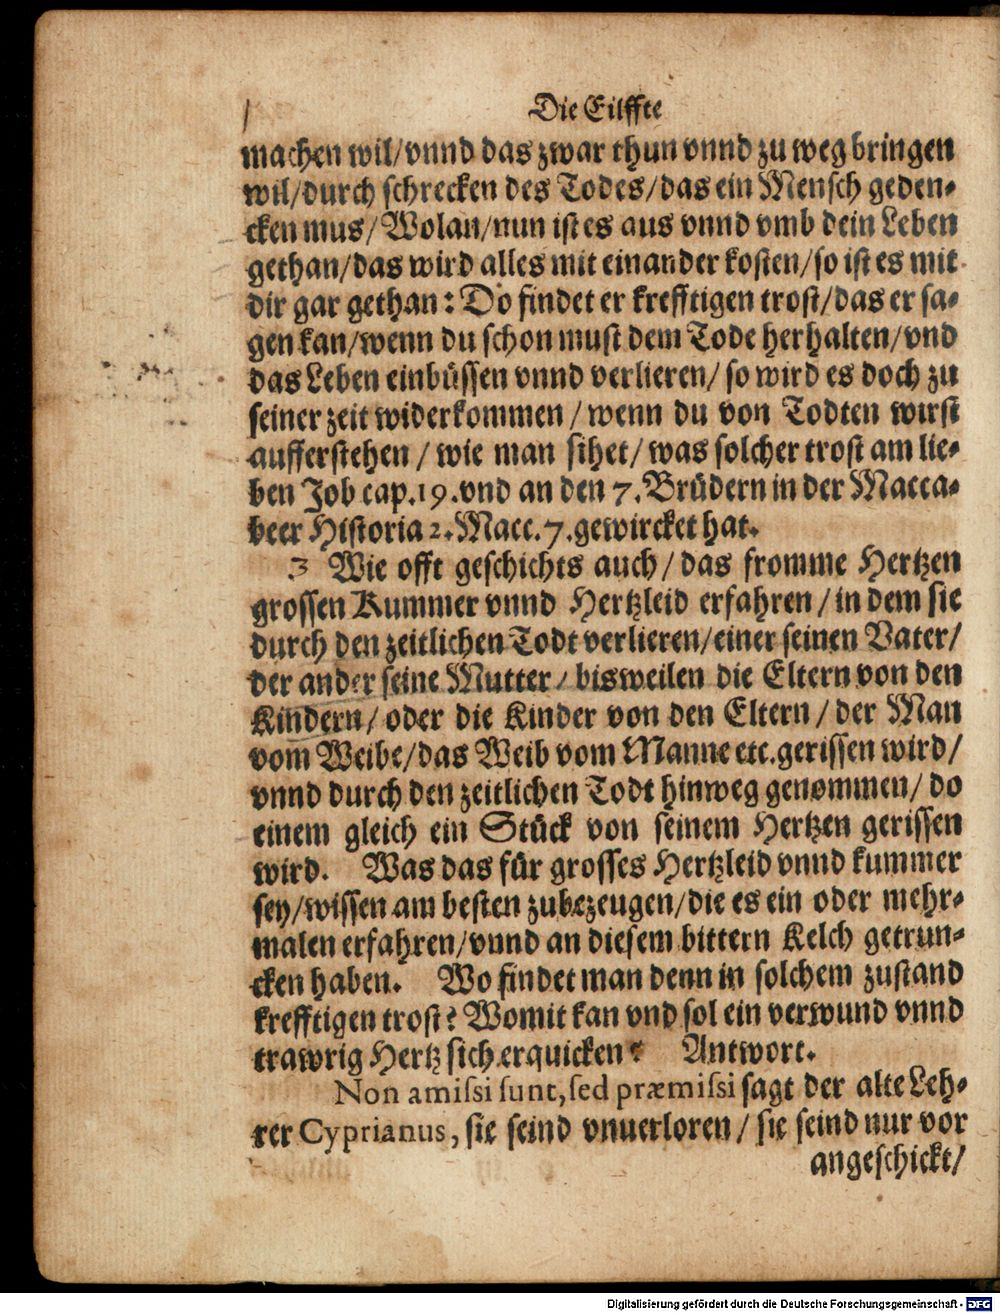 Die Eilffte
machen wil/vnnd das zwar thun vnnd zu weg bringen
wil/durch schrecken des Todes/das ein Mensch geden-
cken mus/Wolan/nun ist es aus vnnd vmb dein Leben
gethan/das wird alles mit einander kosten/so ist es mit
dir gar gethan: Do findet er krefftigen trost/das er sa-
gen kan/wenn du schon must dem Tode herhalten/vnd
das Leben einbüssen vnnd verlieren/so wird es doch zu
seiner zeit widerkommen/wenn du von Todten wirst
aufferstehen/wie man sihet/was solcher trost am lie-
ben Job cap.19.vnd an den 7.Brüdern in der Macca-
beer Historia 2.Macc.7.gewircket hat.
3 Wie offt geschichts auch/das fromme Hertzen
grossen Kummer vnnd Hertzleid erfahren/in dem sie
durch den zeitlichen Todt verlieren/einer seinen Vater/
der ander seine Mutter/bisweilen die Eltern von den
Kindern/oder die Kinder von den Eltern/der Man
vom Weibe/das Weib vom Manne etc.gerissen wird/
vnnd durch den zeitlichen Todt hinweg genommen/do
einem gleich ein Stück von seinem Hertzen gerissen
wird. Was das für grosses Hertzleid vnnd kummer
sey/wissen am besten zubezeugen/die es ein oder mehr-
malen erfahren/vnnd an diesem bittern Kelch getrun-
cken haben. Wo findet man denn in solchem zustand
krefftigen trost? Womit kan vnd sol ein verwund vnnd
trawrig Hertz sich erquicken? Antwort.
Non amissi sunt, sed præmissi sagt der alte Leh-
rer Cyprianus, sie seind vnuerloren/sie seind nur vor
angeschickt/
Digitalisierung gefördert durch die Deutsche Forschungsgemeinschaft - DFG